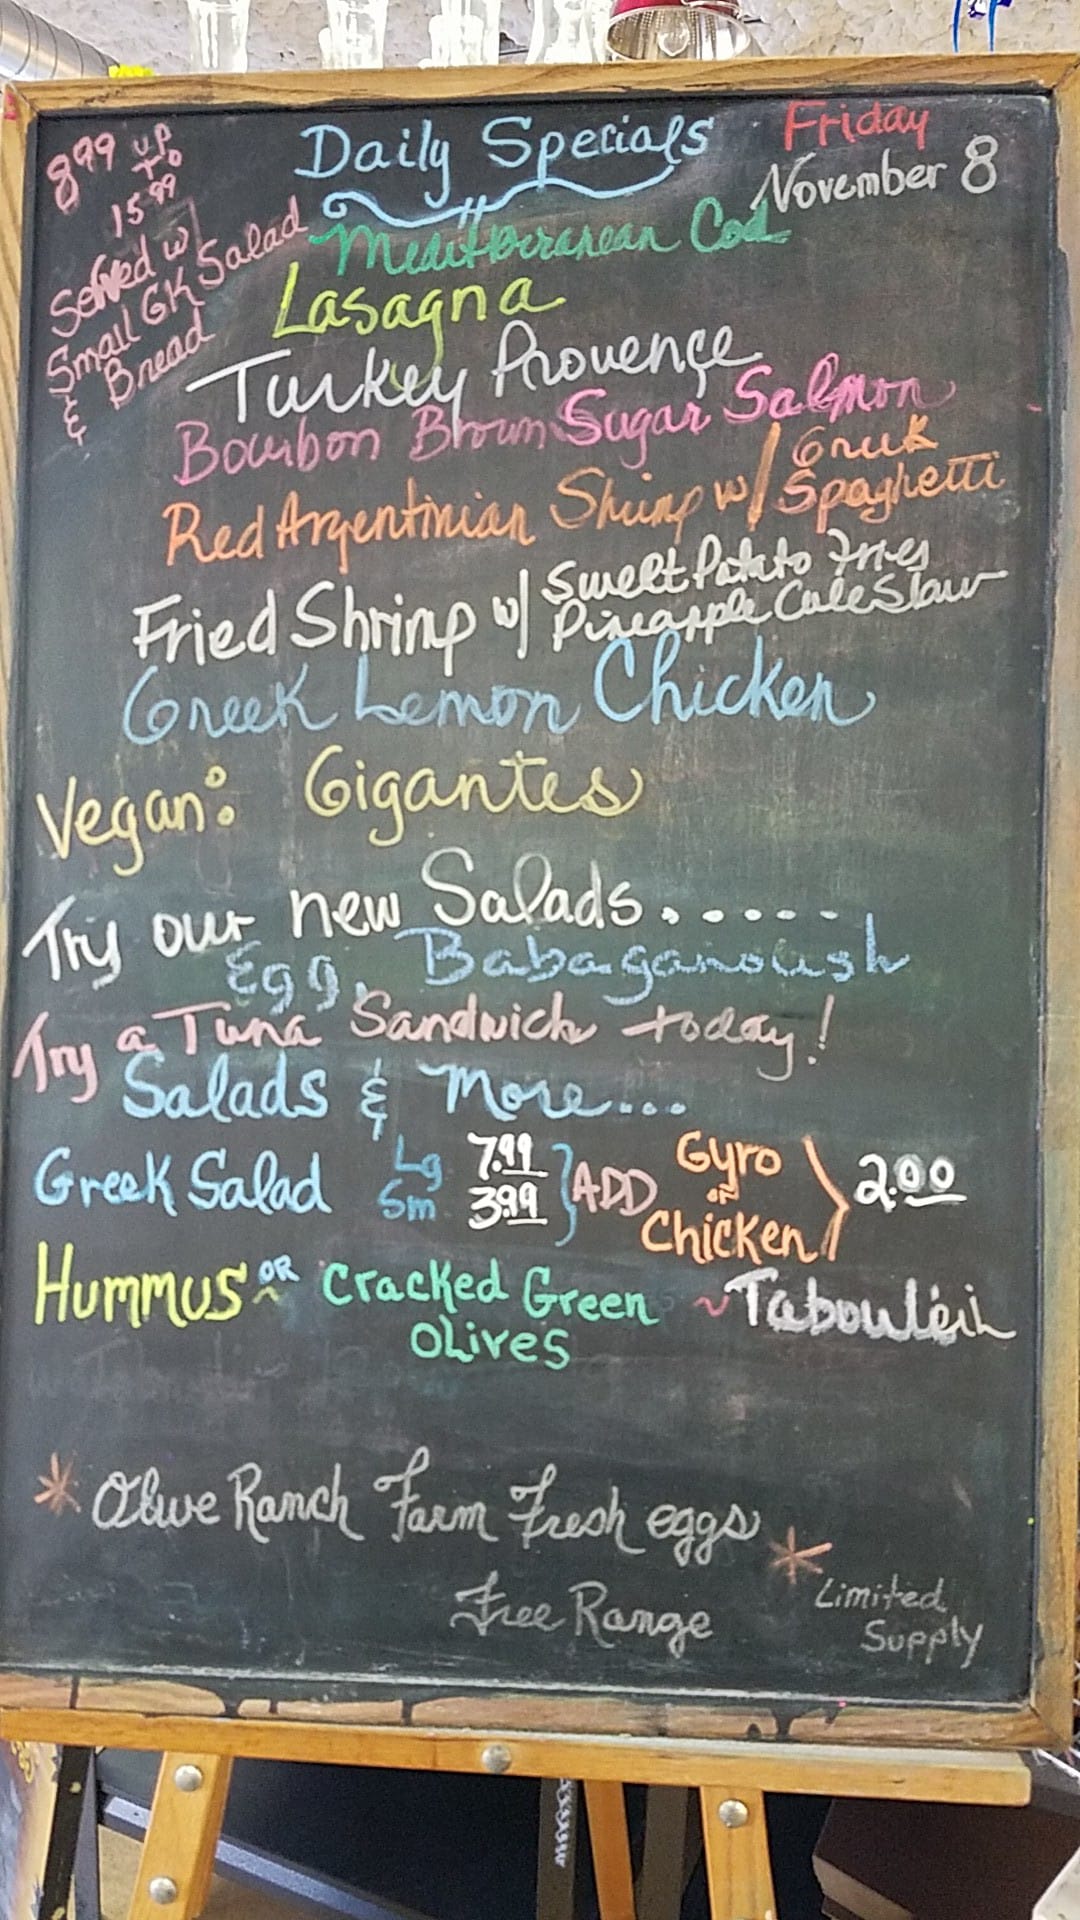 8.99 UP
TO
15.99
Served w
Small GK Salad
& Bread
Daily Specials
Friday
November 8
Mediterranean Cod
Lasagna
Turkey Provençe
Bourbon Brown Sugar Salmon
Red Argentinian Shrimp w/ Greek Spaghetti
Fried Shrimp w/ Sweet Potato Fries
Pineapple Cole Slaw
Greek Lemon Chicken
Vegan: Gigantes
Try our new Salads......
Egg, Babaganoush
Try a Tuna Sandwich today!
Salads & More...
Greek Salad Lg 7.99 Sm 3.99 } ADD Gyro or Chicken 2.00
Hummus OR Cracked Green Olives ~ Tabouleh
* Olive Ranch Farm Fresh eggs *
Free Range
Limited
Supply